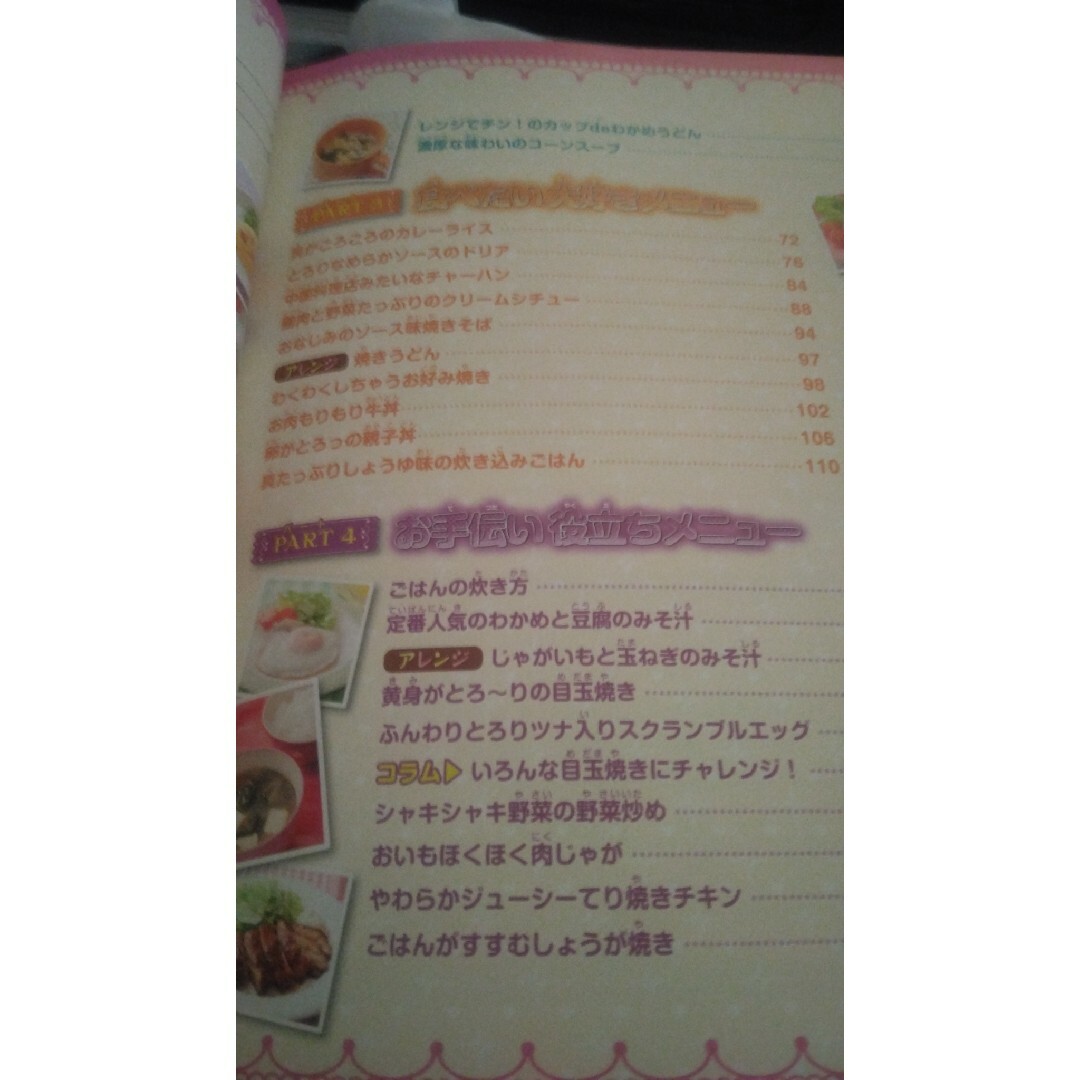 レンジでチン！のカップdeわかめうどん
濃厚な味わいのコーンスープ
PART 3 食べたい大好きメニュー
具がごろごろのカレーライス 72
とろりなめらかソースのドリア 78
中華料理店みたいなチャーハン 84
鶏肉と野菜たっぷりのクリームシチュー 88
おなじみのソース味焼きそば 94
アレンジ 焼きうどん 97
わくわくしちゃうお好み焼き 98
お肉もりもり牛丼 102
卵がとろっの親子丼 106
具たっぷりしょうゆ味の炊き込みごはん 110
PART 4 お手伝い役立ちメニュー
ごはんの炊き方
定番人気のわかめと豆腐のみそ汁
アレンジ じゃがいもと玉ねぎのみそ汁
黄身がとろ〜りの目玉焼き
ふんわりとろりツナ入りスクランブルエッグ
コラム▶ いろんな目玉焼きにチャレンジ！
シャキシャキ野菜の野菜炒め
おいもほくほく肉じゃが
やわらかジューシーてり焼きチキン
ごはんがすすむしょうが焼き